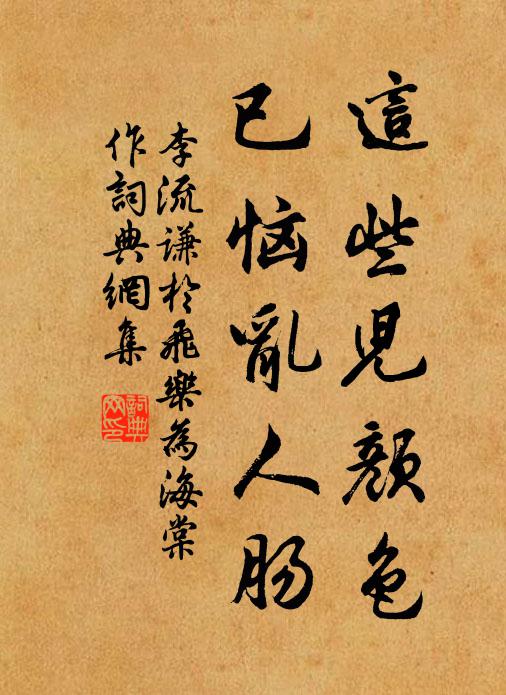 這些兒顏色
已惱亂人腸
李流謙於飛樂為海棠
作詞典網集
詞典
网印